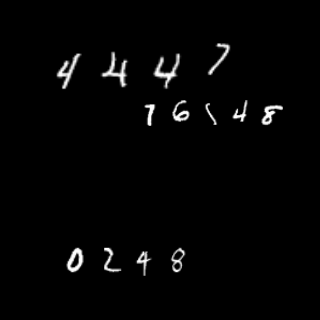 4447
76148
0248